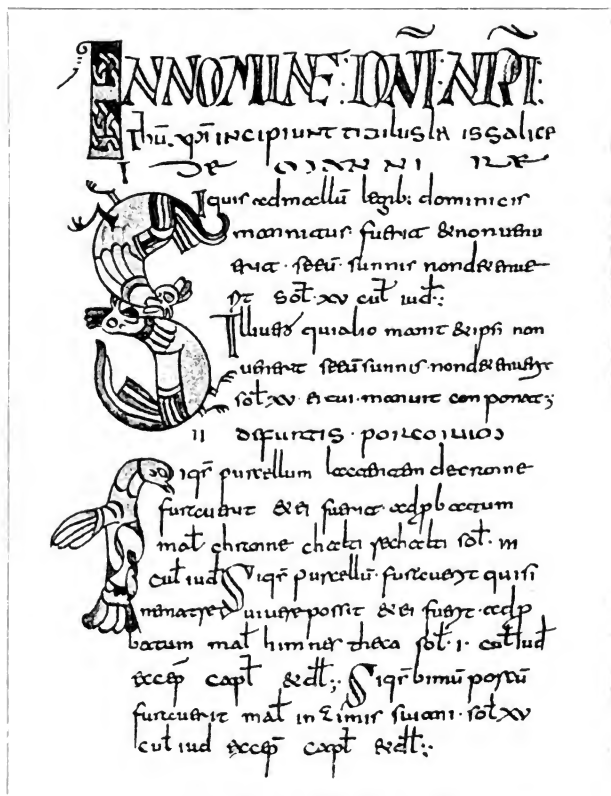 IN NOMINE : DÑI : ÑRI :
Ihū. xpi INCIPIUNT TITULUS LEGIS SALICE
I DE MANNIRE
Siquis ad mallū legib; dominicis
mannitus fuerit & non uenu
erit · seeū sunnis non detenue
rit sol̄ · xv cul̄ iud̄ :;
Ille uero qui alio manit & ipsi non
uenerit seeū sunnis non detenuerit
sol̄ · xv · ei cui · manuit componat ;
II DE FURTIS · PORCORUM
Siqr̄ purcellum lactantem de cronne
furauerit & ei fuerit adp batum
mal̄ chronne chalti rechalti sol̄ · III
cul̄ iud̄ Siqr̄ purcellū · furauerit qui si
ne matre uiuere possit & ei fuerit · adp
batum mal̄ himnes theca sol̄ · I · cul̄ iud̄
excep̄ capl̄ & dl̄ :; Siqr̄ bimū porcū
furauerit mal̄ in zimis suiani · sol̄ xv
cul̄ iud excep̄ capl̄ & dl̄ :;